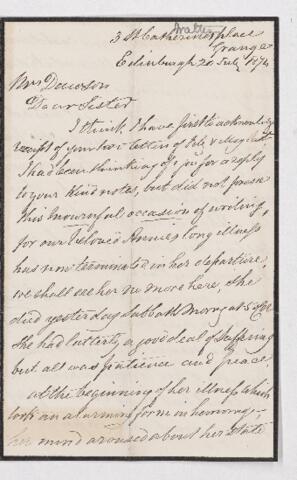 3 St Catherine place
Grange
Edinburgh 20 July 1874
Mrs Dawson
Dear Sister
I think I have first to acknowledge
receipt of your two letters of Feb & May last
I had been thinking of you for a reply
to your kind notes, but did not foresee
this mournful occasion of writing,
for our beloved Annies long illness
has now terminated in her departure,
we shall see her no more here, she
died yesterday Sabbath Morng at 5 oClk
She had latterly a good deal of suffering
but all was patience and peace
at the beginning of her illness which
took an alarming form in
her mind aroused about her state